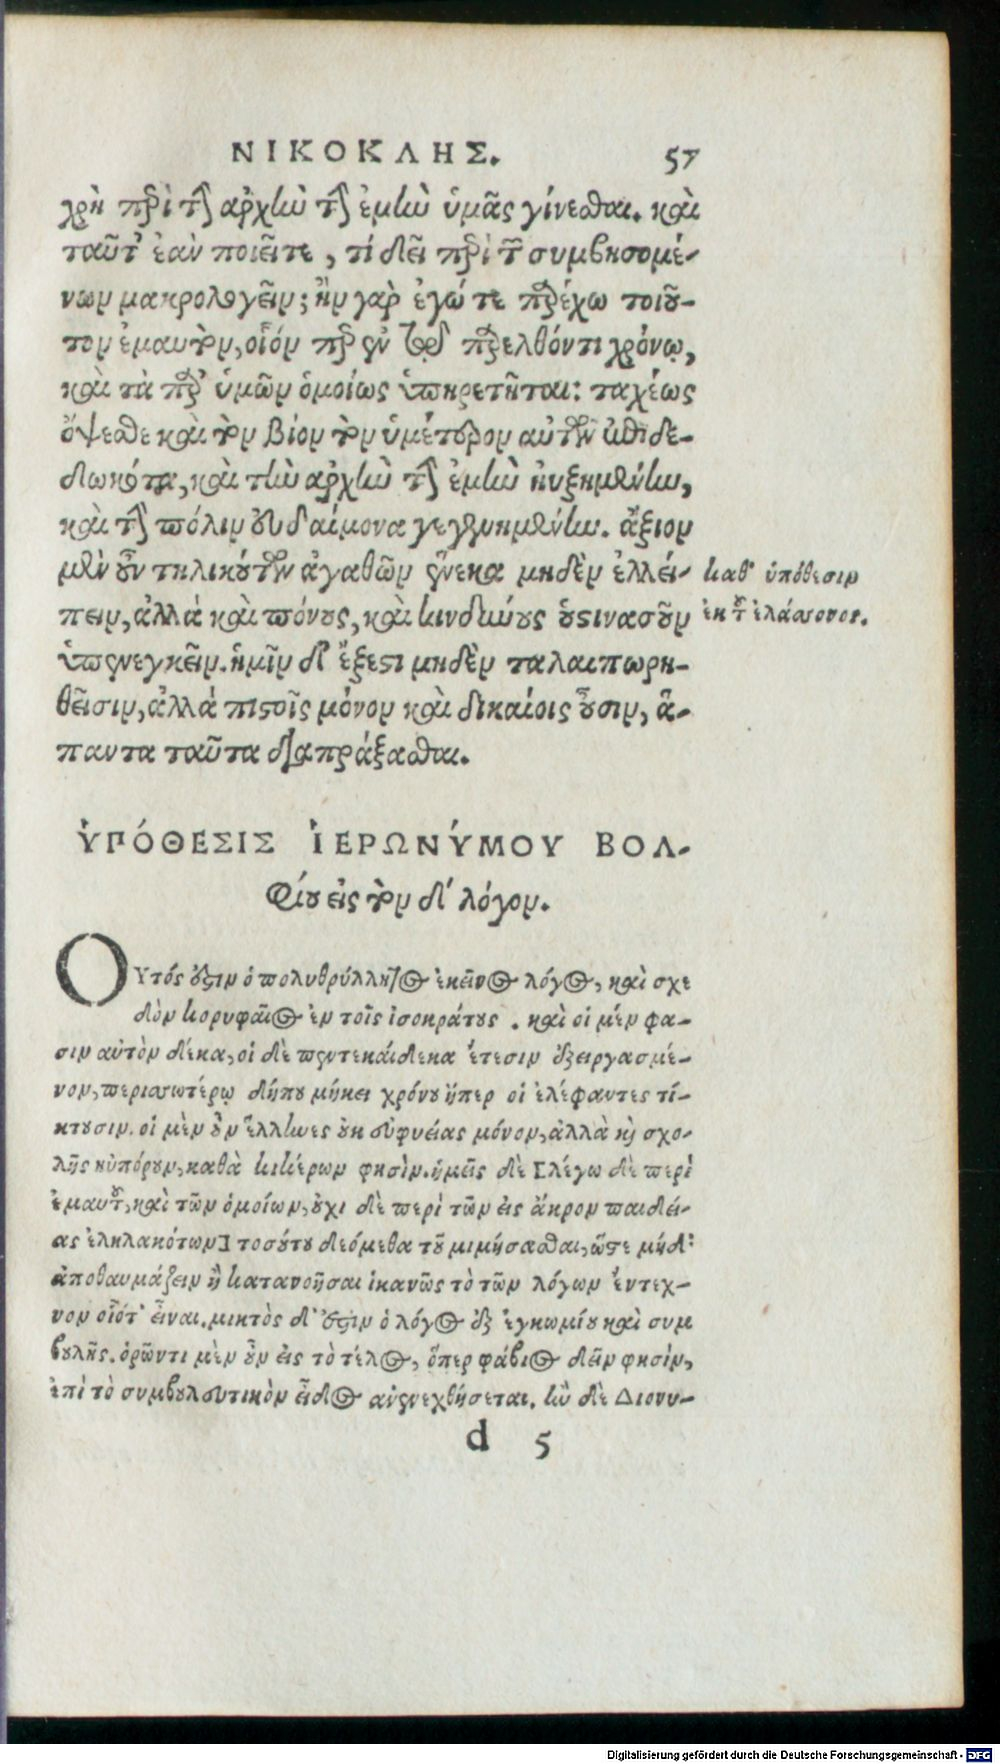 ΝΙΚΟΚΛΗΣ. 57
χρὴ περὶ τὴν ἀρχὴν τὴν ἐμὴν ὑμᾶς γίνεσθαι. καὶ
ταῦτ' ἐὰν ποιεῖτε, τί δεῖ περὶ τῶν συμβησομέ-
νων μακρολογεῖν; ἢν γὰρ ἐγώ τε παρέχω τοιοῦ-
τον ἐμαυτὸν, οἷόν περ ἐν τῷ παρελθόντι χρόνῳ,
καὶ τὰ παρ' ὑμῶν ὁμοίως ὑπηρετῆται: ταχέως
ὄψεσθε καὶ τὸν βίον τὸν ὑμέτερον αὐτῶν ἐπιδε-
δωκότα, καὶ τὴν ἀρχὴν τὴν ἐμὴν ηὐξημένην,
καὶ τὴν πόλιν εὐδαίμονα γεγενημένην. ἄξιον
μὲν οὖν τηλικούτων ἀγαθῶν ἕνεκα μηδὲν ἐλλεί-
πειν, ἀλλὰ καὶ πόνους, καὶ κινδύνους οὑστινασοῦν
ὑπενεγκεῖν. ἡμῖν δ' ἔξεστι μηδὲν ταλαιπωρη-
θεῖσιν, ἀλλὰ πιστοῖς μόνον καὶ δικαίοις οὖσιν, ἅ-
παντα ταῦτα διαπράξασθαι.
καθ' ὑπόθεσιν
ἐκ τοῦ ἐλάσσονος.
ὙΠΌΘΕΣΙΣ ἹΕΡΩΝΎΜΟΥ ΒΟΛ-
Φίου εἰς τὸν δ' λόγον.
ΟΥτός ἐστιν ὁ πολυθρύλλητος ἐκεῖνος λόγος, καὶ σχε
δὸν κορυφαῖος ἐν τοῖς ἰσοκράτους. καὶ οἱ μὲν φα-
σιν αὐτὸν δέκα, οἱ δὲ πεντεκαίδεκα ἔτεσιν ἐξειργασμέ-
νον, περισσωτέρῳ δήπου μήκει χρόνου ἤπερ οἱ ἐλέφαντες τί-
κτουσιν. οἱ μὲν οὖν ἕλληνες οὐκ εὐφυείας μόνον, ἀλλὰ καὶ σχο-
λῆς ηὐπόρουν, καθὰ κικέρων φησίν. ἡμεῖς δὲ [λέγω δὲ περὶ
ἐμαυτοῦ, καὶ τῶν ὁμοίων, οὐχὶ δὲ περὶ τῶν εἰς ἄκρον παιδεί-
ας ἐληλακότων] τοσούτου δεόμεθα τοῦ μιμήσασθαι, ὥστε μήδ'
ἀποθαυμάζειν ἢ κατανοῆσαι ἱκανῶς τὸ τῶν λόγων ἔντεχ-
νον οἷοί τ' εἶναι. μικτὸς δ' ἐστὶν ὁ λόγος ἐξ ἐγκωμίου καὶ συμ
βουλῆς. ὁρῶντι μὲν οὖν εἰς τὸ τέλος, ὅπερ φάβιος δεῖν φησὶν,
ἐπὶ τὸ συμβουλευτικὸν εἶδος ἀνενεχθήσεται. ἣν δὲ Διονυ-
d 5
Digitalisierung gefördert durch die Deutsche Forschungsgemeinschaft - DFG